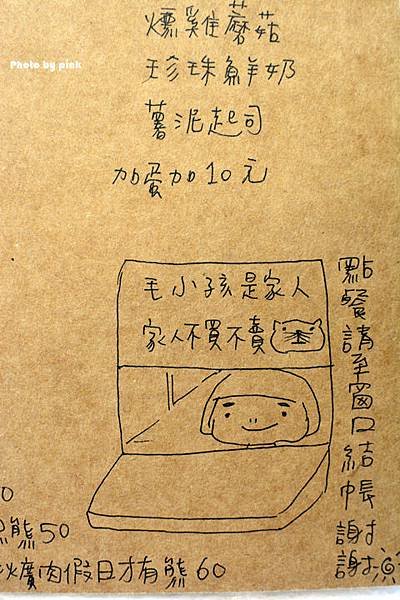 Photo by pink
燻雞蘑菇
珍珠鮮奶
薯泥起司
加蛋加10元
毛小孩是家人
家人不買不賣
點餐請至窗口結帳謝謝
0
熊50
肉假日才有熊60